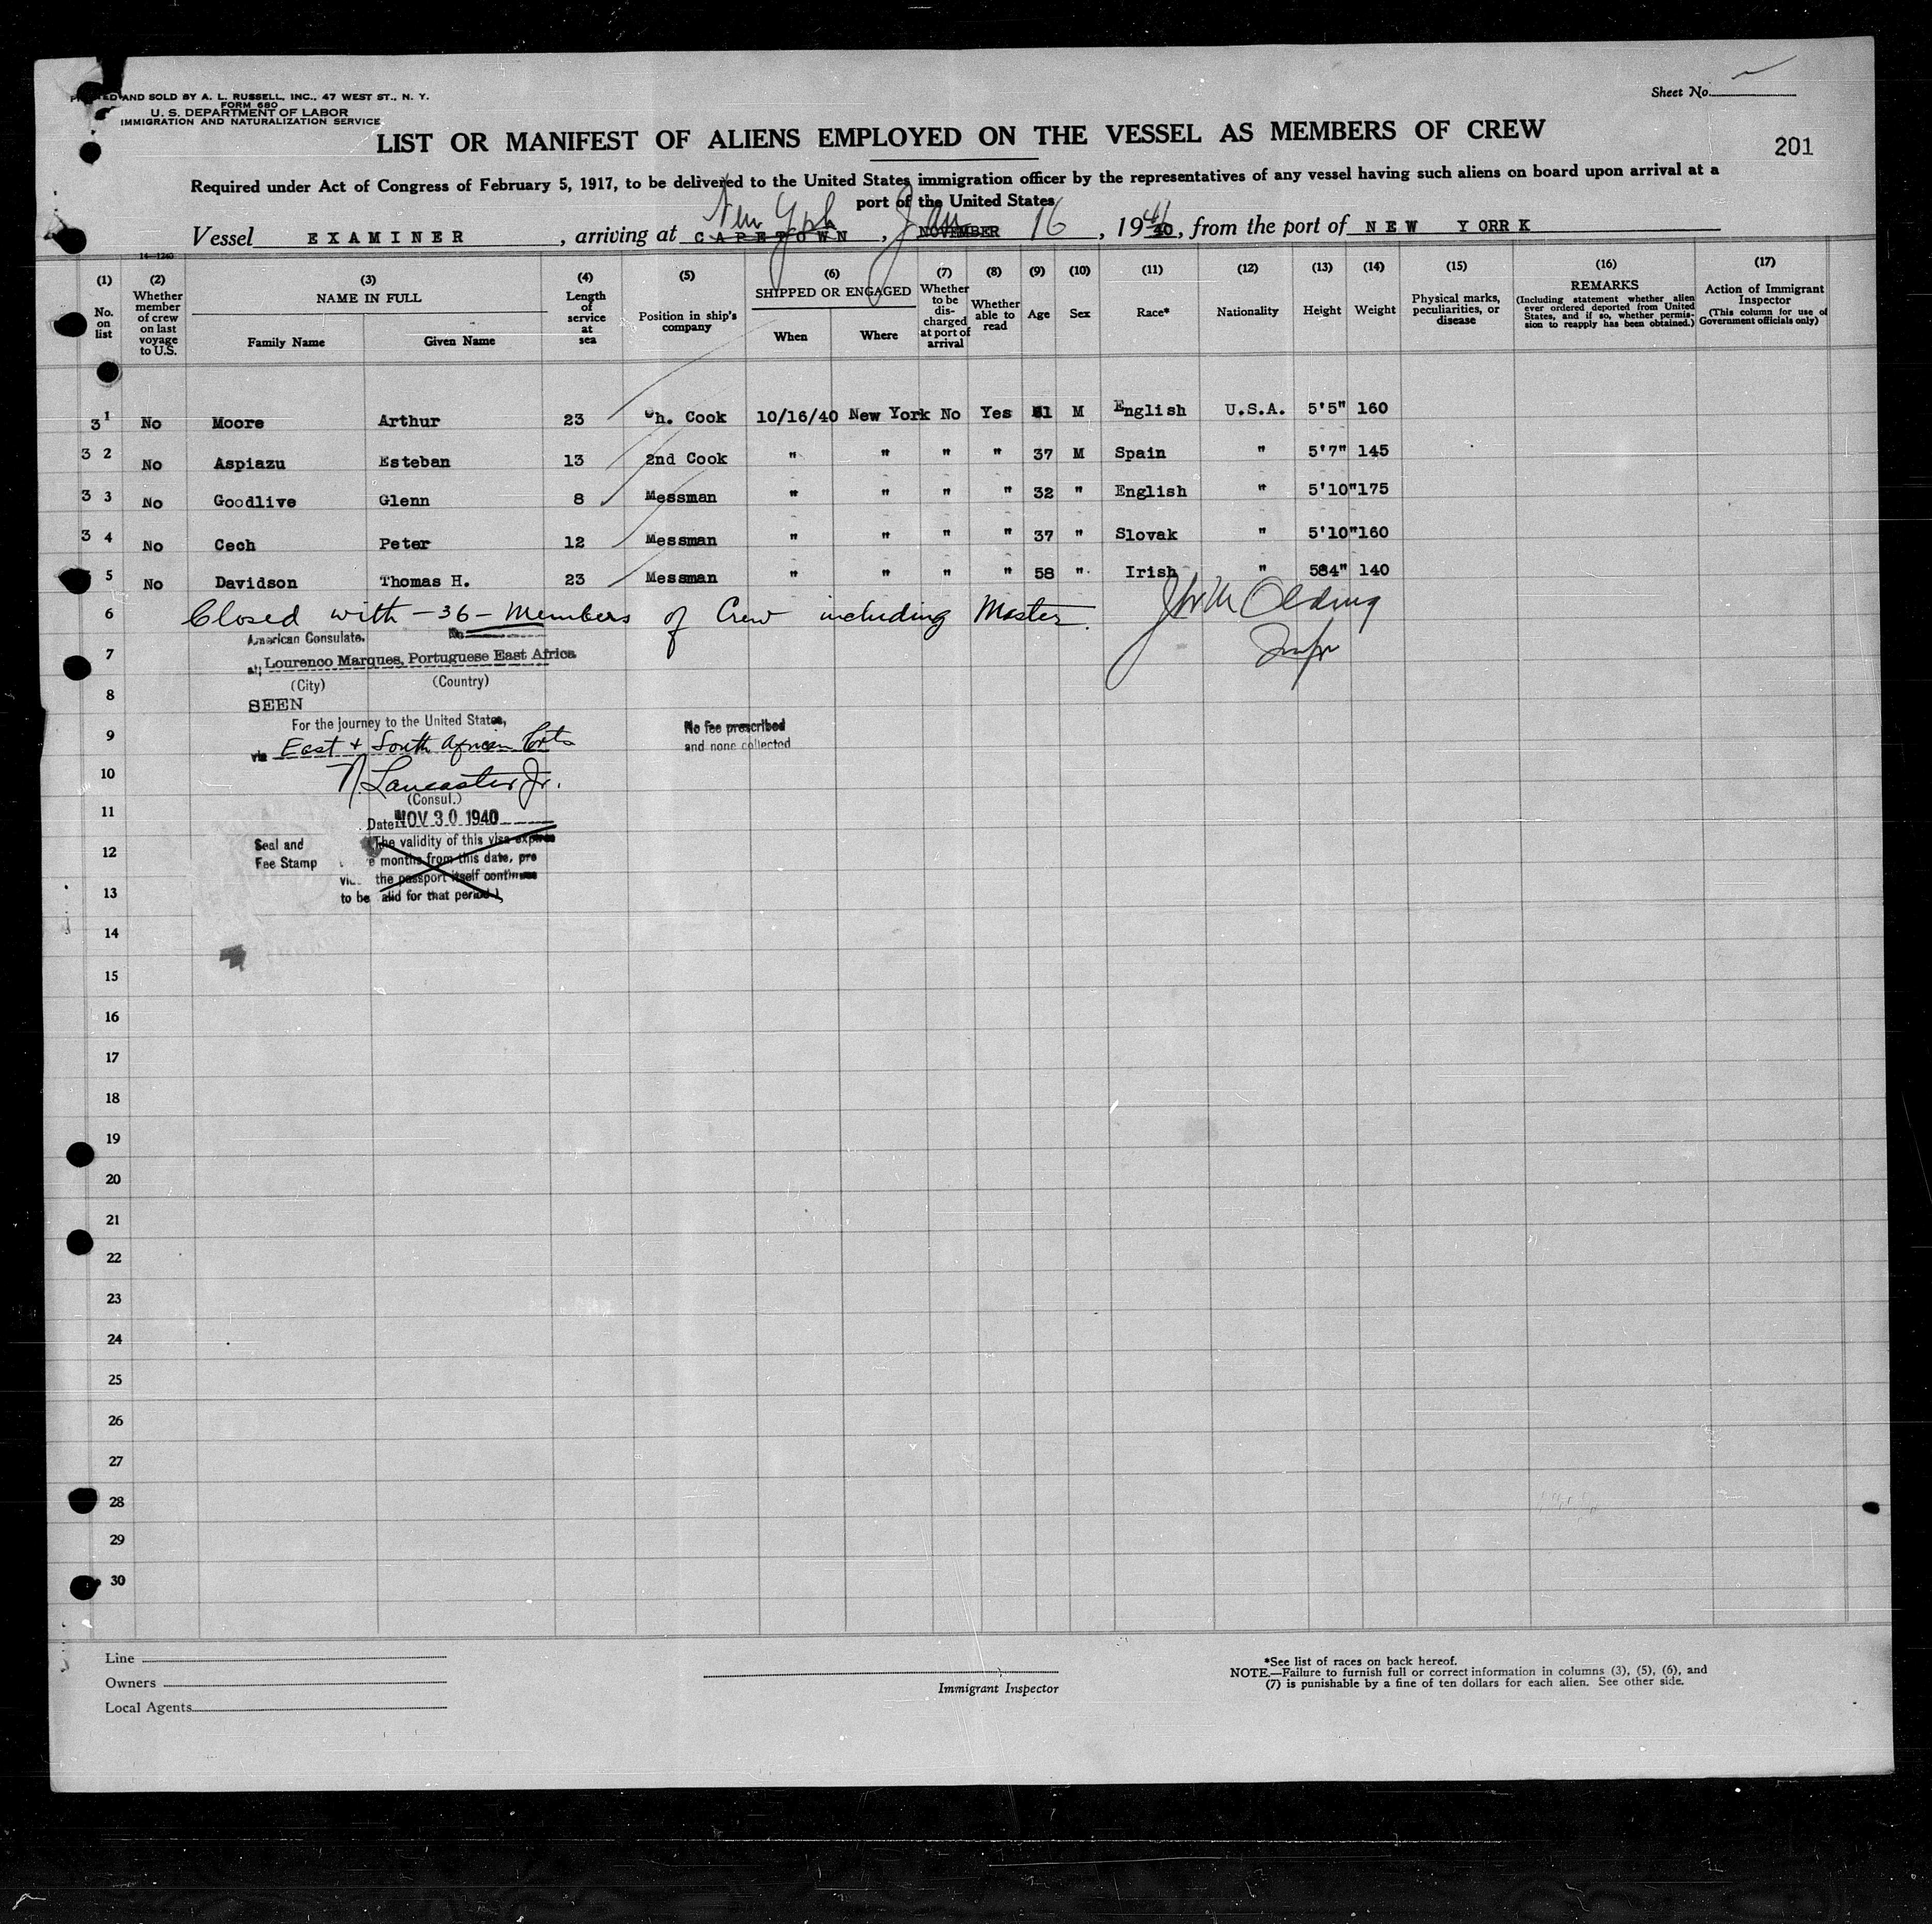 PRINTED AND SOLD BY A. L. RUSSELL, INC., 47 WEST ST., N. Y.
FORM 680
U. S. DEPARTMENT OF LABOR
IMMIGRATION AND NATURALIZATION SERVICE
Sheet No.
LIST OR MANIFEST OF ALIENS EMPLOYED ON THE VESSEL AS MEMBERS OF CREW
201
Required under Act of Congress of February 5, 1917, to be delivered to the United States immigration officer by the representatives of any vessel having such aliens on board upon arrival at a
port of the United States
New York Jan 16 41
Vessel EXAMINER, arriving at CAPETOWN, NOVEMBER, 1940, from the port of NEW YORR K
14-1240
(1) No. on list
(2) Whether member of crew on last voyage to U.S.
(3) NAME IN FULL Family Name Given Name
(4) Length of service at sea
(5) Position in ship's company
(6) SHIPPED OR ENGAGED When Where
(7) Whether to be discharged at port of arrival
(8) Whether able to read
(9) Age
(10) Sex
(11) Race*
(12) Nationality
(13) Height
(14) Weight
(15) Physical marks, peculiarities, or disease
(16) REMARKS (Including statement whether alien ever ordered deported from United States, and if so, whether permission to reapply has been obtained.)
(17) Action of Immigrant Inspector (This column for use of Government officials only)
3 1 No Moore Arthur 23 Ch. Cook 10/16/40 New York No Yes M English U.S.A. 5'5" 160
3 2 No Aspiazu Esteban 13 2nd Cook " " " " 37 M Spain " 5'7" 145
3 3 No Goodlive Glenn 8 Messman " " " " 32 " English " 5'10" 175
3 4 No Cech Peter 12 Messman " " " " 37 " Slovak " 5'10" 160
5 No Davidson Thomas H. 23 Messman " " " " 58 " Irish " 584" 140
6 Closed with -36- Members of Crew including Master.
American Consulate. No
7 at Lourenco Marques, Portuguese East Africa
(City) (Country)
8
SEEN
For the journey to the United States,
9 via East & South African Ports
No fee prescribed
and none collected
10 N. Lancaster Jr.
(Consul.)
11 Date NOV 30 1940
Seal and
Fee Stamp
12 (The validity of this visa expires
months from this date, pro
the passport itself continues
13 to be valid for that period.)
14
15
16
17
18
19
20
21
22
23
24
25
26
27
28
29
30
Line
Owners
Local Agents
Immigrant Inspector
*See list of races on back hereof.
NOTE.—Failure to furnish full or correct information in columns (3), (5), (6), and
(7) is punishable by a fine of ten dollars for each alien. See other side.